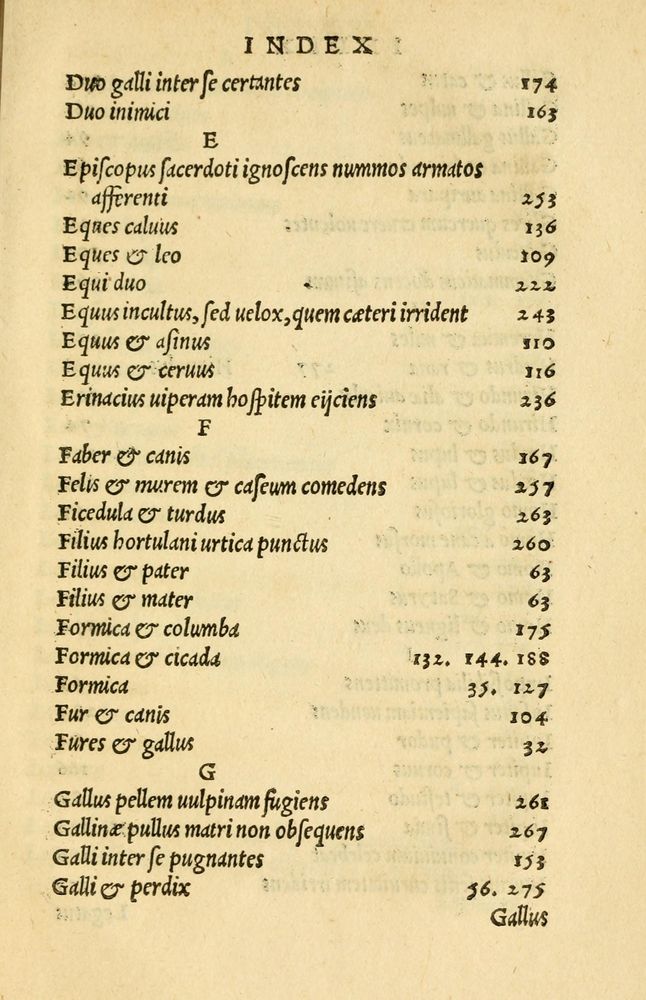 INDEX
Duo galli inter se certantes 174
Duo inimici 163
E
Episcopus sacerdoti ignoscens nummos armatos
afferenti 253
Eques caluus 136
Eques & leo 109
Equi duo 222
Equus incultus, sed uelox, quem cæteri irrident 243
Equus & asinus 110
Equus & ceruus 116
Erinacius uiperam hospitem eijciens 236
F
Faber & canis 167
Felis & murem & caseum comedens 257
Ficedula & turdus 263
Filius hortulani urtica punctus 260
Filius & pater 63
Filius & mater 63
Formica & columba 175
Formica & cicada 132. 144. 188
Formica 35. 127
Fur & canis 104
Fures & gallus 32
G
Gallus pellem uulpinam fugiens 261
Gallinæ pullus matri non obsequens 267
Galli inter se pugnantes 153
Galli & perdix 36. 275
Gallus